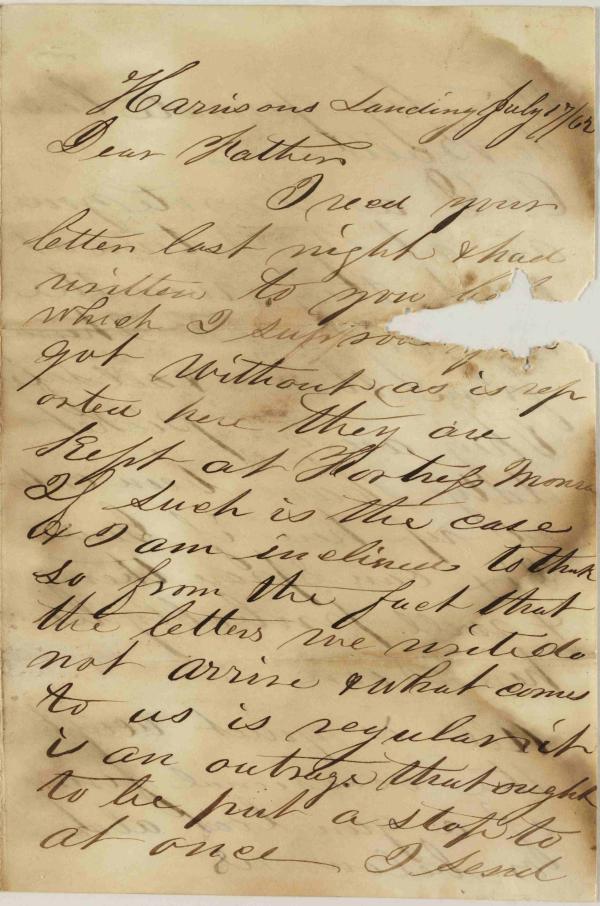 Harrisons Landing July 17/62
Dear Father
I recd your
letter last night & had
written to you
which I suppose
got without as is rep
orted here they are
Kept at Fortress Monroe
If such is the case
& I am inclined to think
so from the fact that
the letters we write do
not arrive & what comes
to us is regular it
is an outrage that ought
to be put a stop to
at once I send